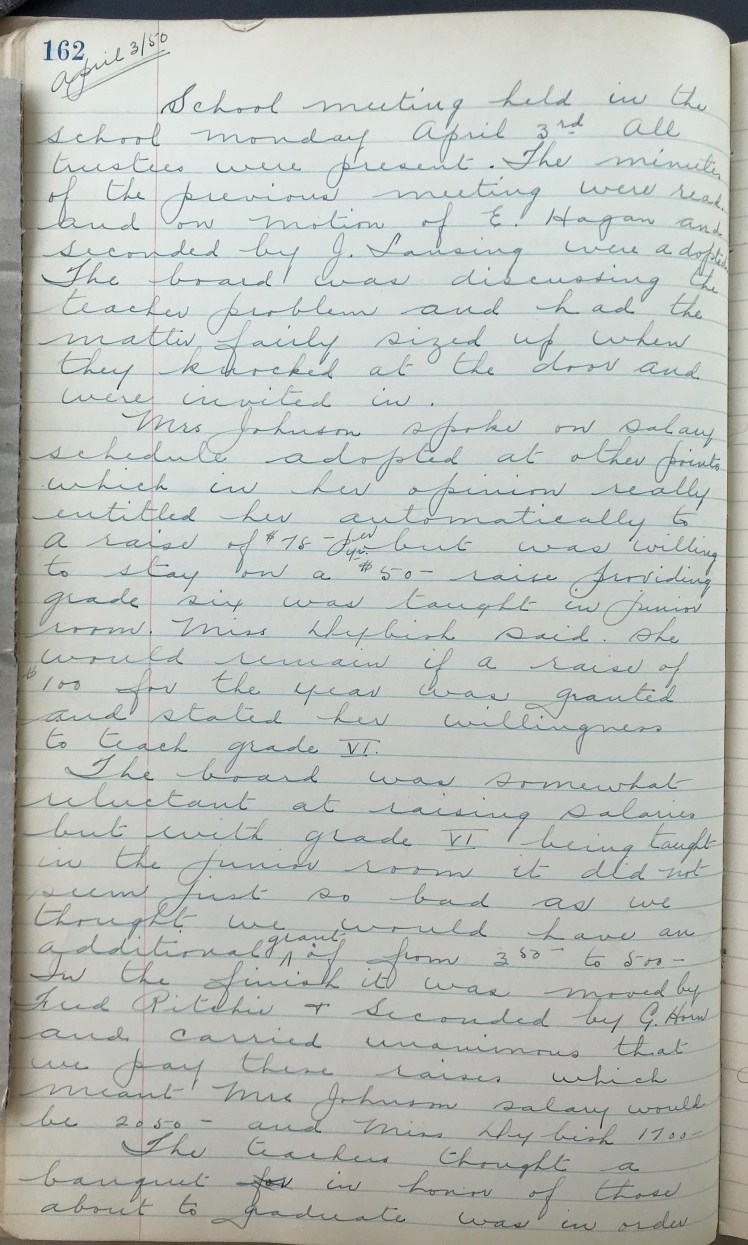 162
April 3/50
School meeting held in the
school monday April 3rd All
trustees were present. The minutes
of the previous meeting were read
and on motion of E. Hagan and
seconded by J. Lansing were adopted
The board was discussing the
teacher problem and had the
matter fairly sized up when
they knocked at the door and
were invited in.
Mrs Johnson spoke on salary
schedule adopted at other points
which in her opinion really
entitled her automatically to
a raise of $75- per yr but was willing
to stay on a $50- raise providing
grade six was taught in junior
room. Miss Dybish said. she
would remain if a raise of
$100 for the year was granted
and stated her willingness
to teach grade VI.
The board was somewhat
reluctant at raising salaries
but with grade VI being taught
in the junior room it did not
seem just so bad as we
thought we would have an
additional grant of from 350- to 500-
In the finish it was moved by
Fred Ritchie + Seconded by G. Horn
and carried unanimous that
we pay these raises which
meant Mrs Johnson salary would
be 2050- and Miss Dybish 1700-
The teachers thought a
banquet for in honor of those
about to graduate was in order